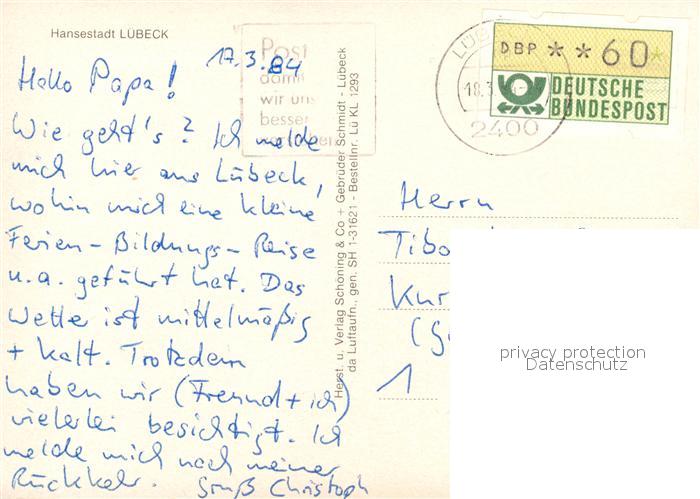 Hansestadt LÜBECK
17.3.84
Hallo Papa!
Wie geht's? Ich melde
mich hier aus Lübeck,
wohin mich eine kleine
Ferien-Bildungs-Reise
u.a. geführt hat. Das
Wetter ist mittelmäßig
+ kalt. Trotzdem
haben wir (Freund + ich)
vielerlei besichtigt. Ich
melde mich nach meiner
Rückkehr. Gruß Christoph
Post
damit
wir uns
besser
Herst. u. Verlag Schöning & Co + Gebrüder Schmidt - Lübeck
da Luftaufn., gen. SH 1-31621 - Bestellnr. Lü KL 1293
LÜB
18.3.
2400
DBP ** 60
DEUTSCHE
BUNDESPOST
Herrn
Tibo
Kur
1
privacy protection
Datenschutz